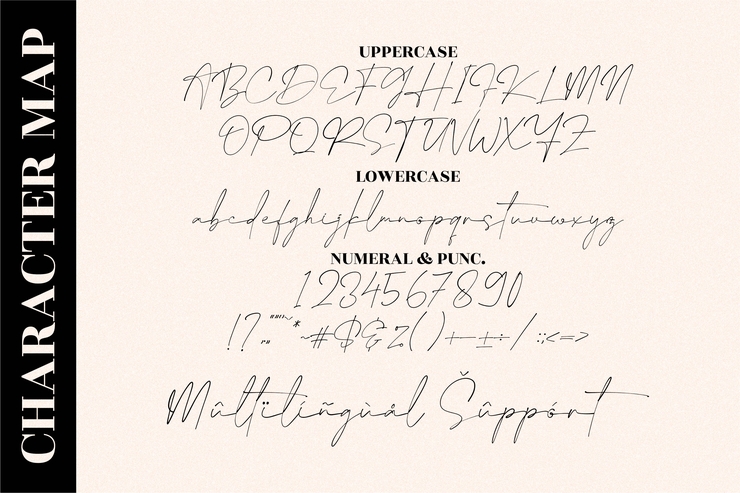 CHARACTER MAP
UPPERCASE
ABCDEFGHIJKLMN
OPQRSTUVWXYZ
LOWERCASE
abcdefghijklmnopqrstuvwxyz
NUMERAL & PUNC.
1234567890
!? * ~#$&%()+-±÷/:;<=>
Mûltïlíñgùål Šûppórt